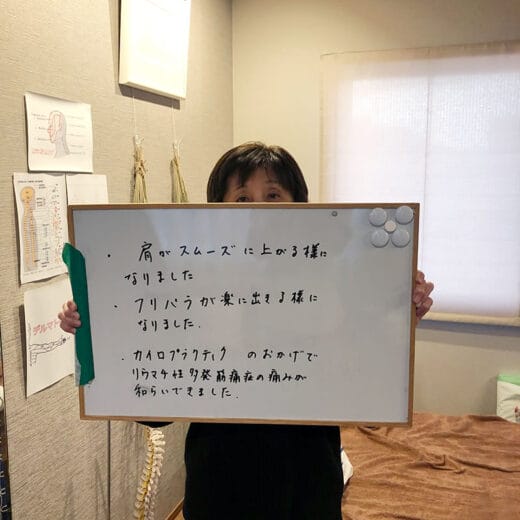 ・肩がスムーズに上がる様に
なりました
・フリバラが楽に出きる様に
なりました.
・カイロプラクティク のおかげで
リウマチ性多発筋痛症の痛みが
和らいできました.
デルマト